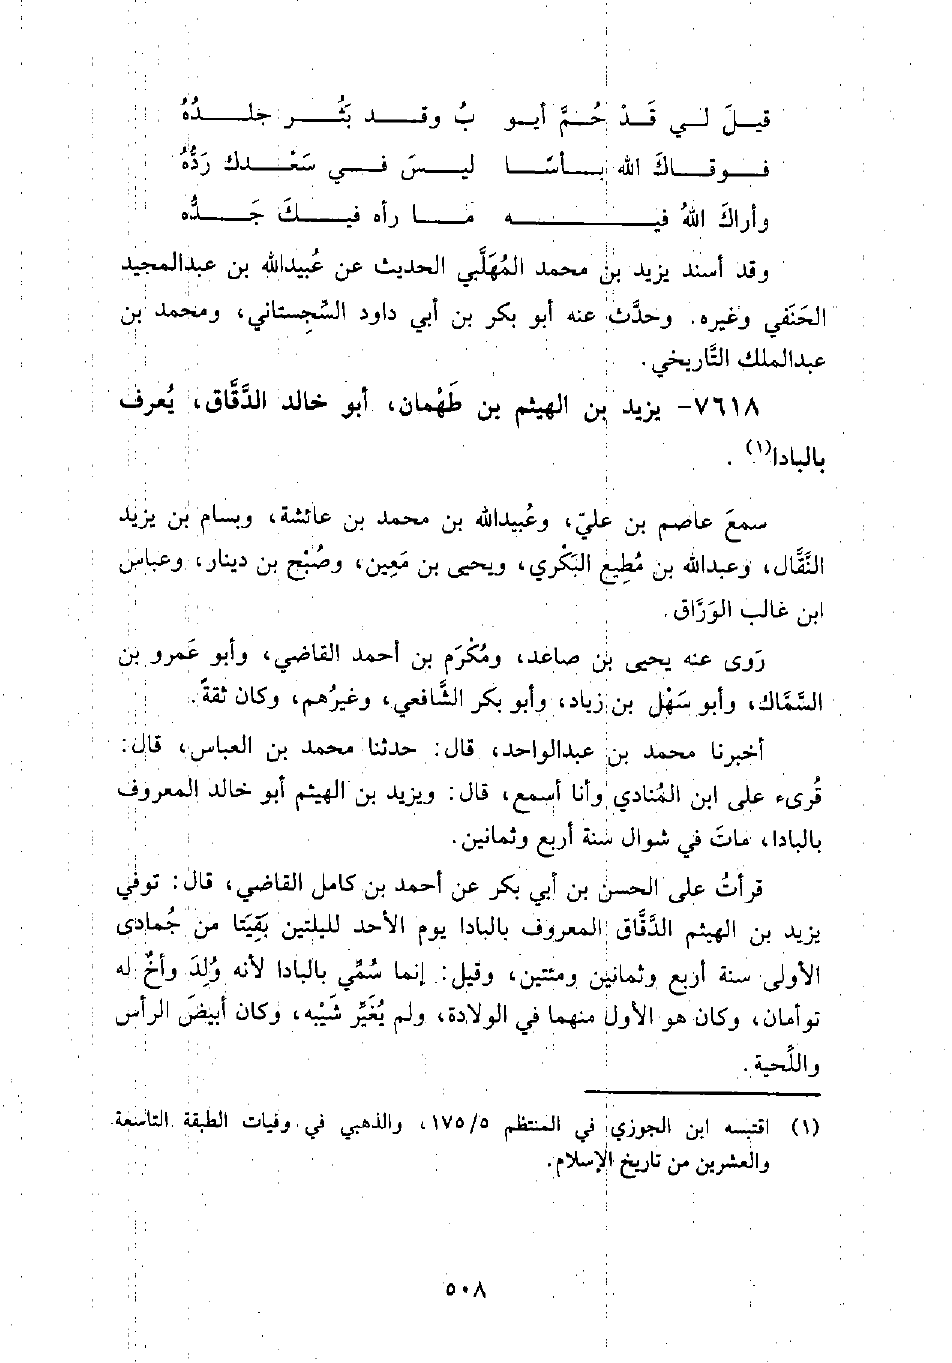 قيلَ لي قَدْ حُمَّ أيو بُ وقد بَثُر جلدُهُ
فوقاكَ الله بأسًا ليسَ في سَعْدك رَدُّهُ
وأراكَ اللهُ فيه ما رأه فيكَ جَدُّه
وقد أسند يزيد بن محمد المُهَلَّبي الحديث عن عُبيدالله بن عبدالمجيد
الحَنَفي وغيره. وحدَّث عنه أبو بكر بن أبي داود السِّجِستاني، ومحمد بن
عبدالملك التَّاريخي.
٧٦١٨- يزيد بن الهيثم بن طَهْمان، أبو خالد الدَّقَّاق، يُعرف
بالبادا(١).
سمعَ عاصم بن عليّ، وعُبيدالله بن محمد بن عائشة، وبسام بن يزيد
النَّقَّال، وعبدالله بن مُطِيع البَكْري، ويحيى بن مَعِين، وصُبْح بن دينار، وعباس
ابن غالب الوَرَّاق.
رَوى عنه يحيى بن صاعد، ومُكْرَم بن أحمد القاضي، وأبو عَمرو بن
السَّمَّاك، وأبو سَهْل بن زياد، وأبو بكر الشَّافعي، وغيرُهم، وكان ثقةً.
أخبرنا محمد بن عبدالواحد، قال: حدثنا محمد بن العباس، قال:
قُرىء على ابن المُنادي وأنا أسمع، قال: ويزيد بن الهيثم أبو خالد المعروف
بالبادا، ماتَ في شوال سنة أربع وثمانين.
قرأتُ على الحسن بن أبي بكر عن أحمد بن كامل القاضي، قال: توفي
يزيد بن الهيثم الدَّقَّاق المعروف بالبادا يوم الأحد لليلتين بَقِيَتا من جُمادى
الأولى سنة أربع وثمانين ومئتين، وقيل: إنما سُمِّي بالبادا لأنه وُلِدَ وأخٌ له
توأمان، وكان هو الأول منهما في الولادة، ولم يُغَيِّر شَيْبه، وكان أبيضَ الرأس
واللِّحية.
(١) اقتبسه ابن الجوزي في المنتظم ٥/ ١٧٥، والذهبي في وفيات الطبقة التاسعة
والعشرين من تاريخ الإسلام.
٥٠٨